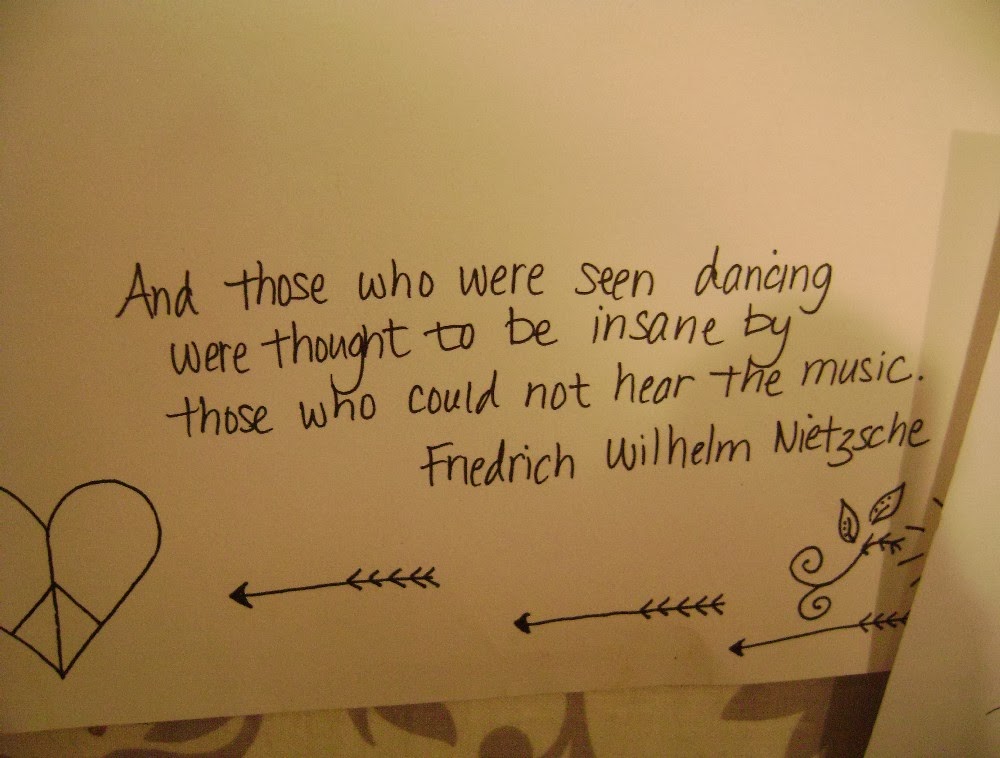 And those who were seen dancing
were thought to be insane by
those who could not hear the music.
Friedrich Wilhelm Nietzsche